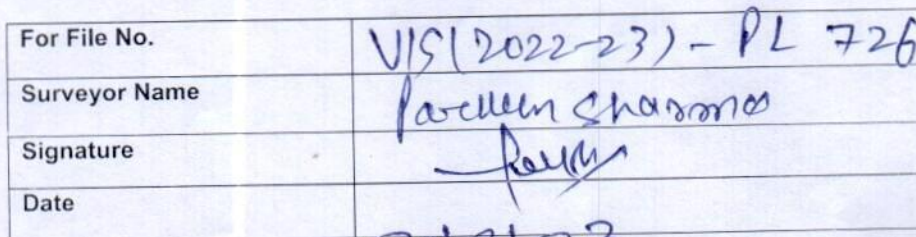 For File No. VIS(2022-23) - PL 726
Surveyor Name Parveen Sharma
Signature
Date